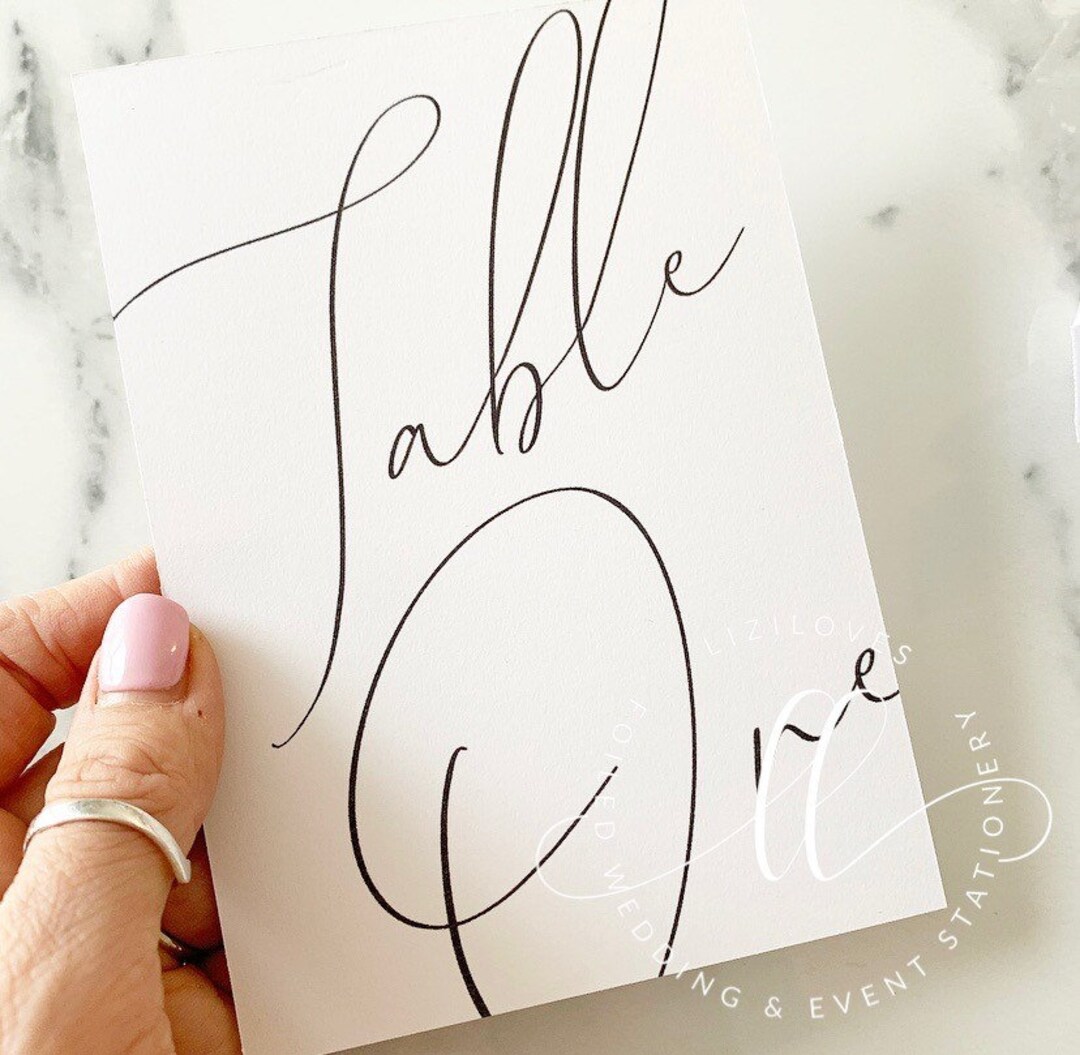 Table
One
LIZILOVES
ll
FOILED WEDDING & EVENT STATIONERY